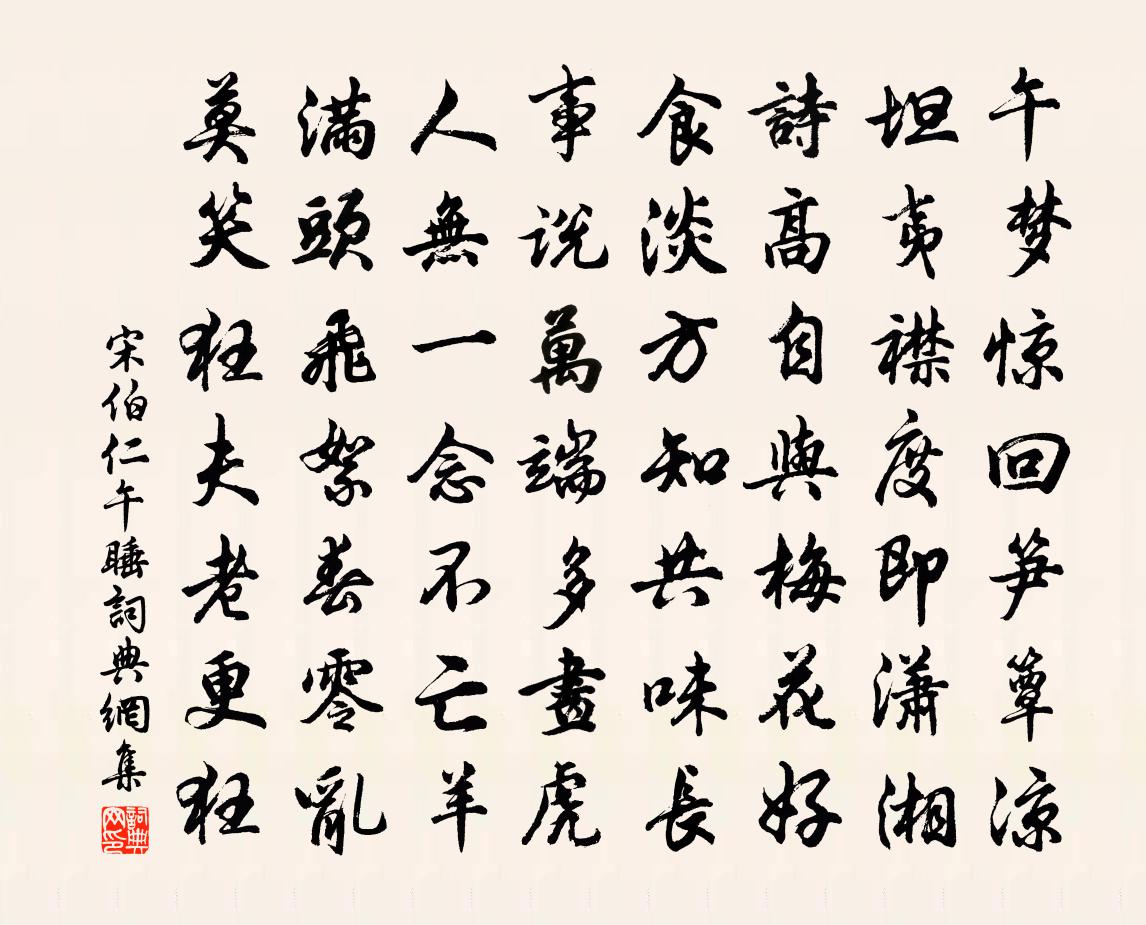 午梦惊回笋簟凉
坦夷襟度即潇湘
詩高自與梅花好
食淡方知共味長
事说萬端多畫虎
人無一念不亡羊
滿頭飛絮春零亂
莫笑狂夫老更狂
宋伯仁午睡詞典網集
詞典网印